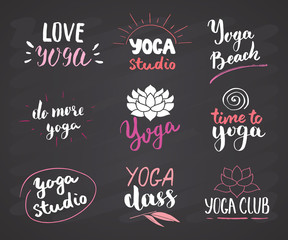 LOVE
YOGA
YOGA
Studio
Yoga
Beach
do more
yoga
Yoga
time to
yoga
yoga
studio
YOGA
class
YOGA CLUB